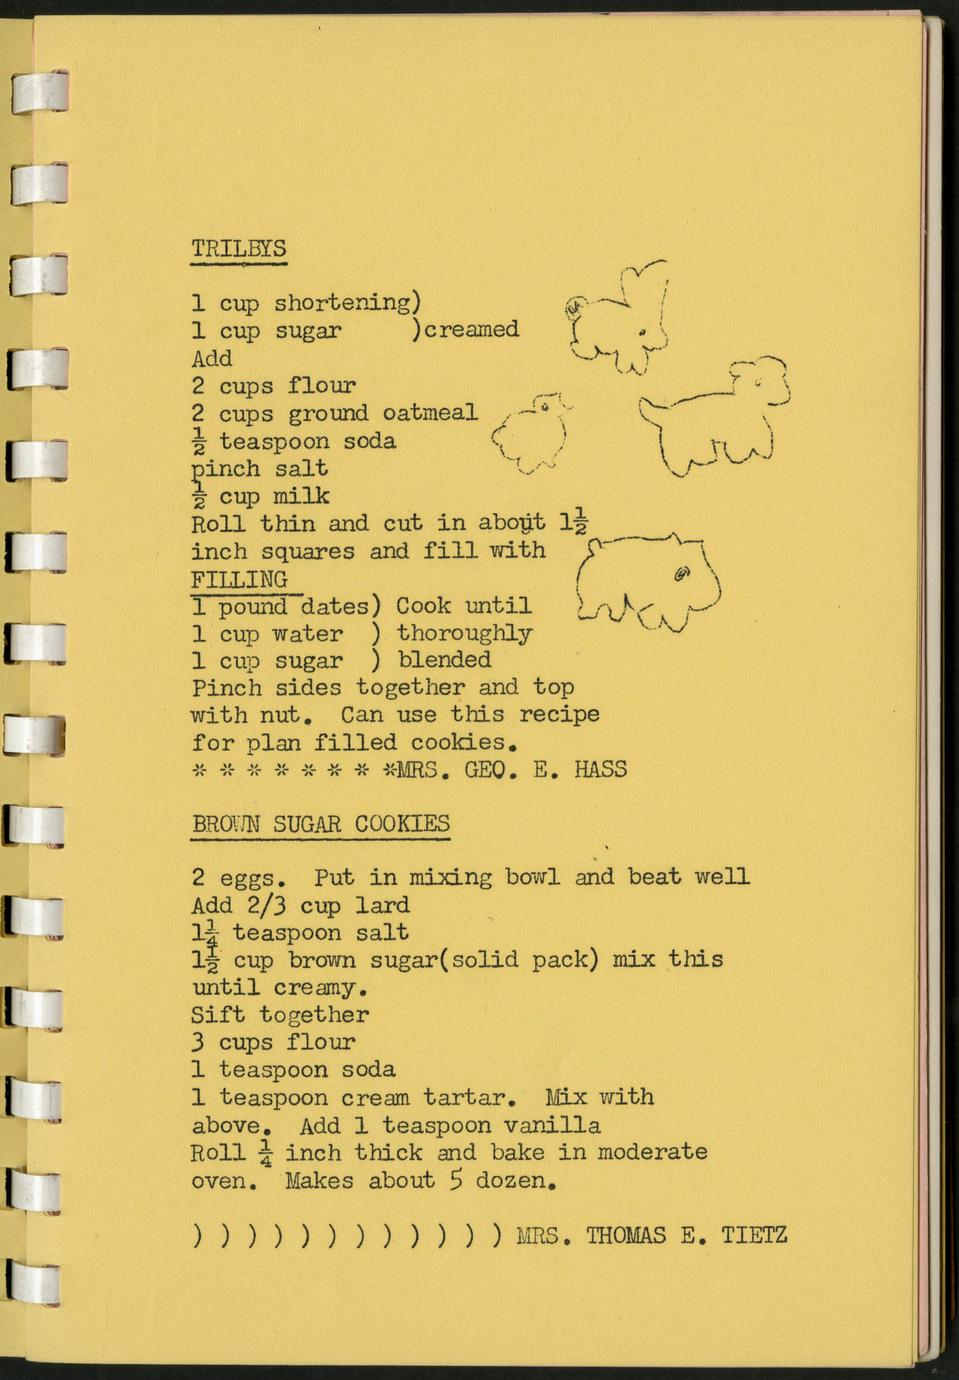 TRILBYS
1 cup shortening)
1 cup sugar     )creamed
Add
2 cups flour
2 cups ground oatmeal
½ teaspoon soda
pinch salt
½ cup milk
Roll thin and cut in about 1½
inch squares and fill with
FILLING
1 pound dates) Cook until
1 cup water  ) thoroughly
1 cup sugar  ) blended
Pinch sides together and top
with nut.  Can use this recipe
for plan filled cookies.
* * * * * * * *MRS. GEO. E. HASS
BROWN SUGAR COOKIES
2 eggs.  Put in mixing bowl and beat well
Add 2/3 cup lard
1¼ teaspoon salt
1½ cup brown sugar(solid pack) mix this
until creamy.
Sift together
3 cups flour
1 teaspoon soda
1 teaspoon cream tartar.  Mix with
above.  Add 1 teaspoon vanilla
Roll ¼ inch thick and bake in moderate
oven.  Makes about 5 dozen.
) ) ) ) ) ) ) ) ) ) ) ) MRS. THOMAS E. TIETZ